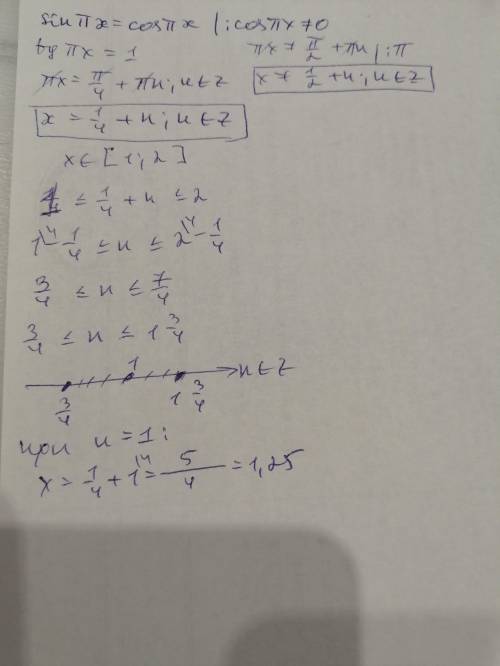 sin πx = cos πx | : cos πx ≠ 0
tg πx = 1    πx ≠ π/2 + πn | : π
πx = π/4 + πn; n ∈ Z    x ≠ 1/2 + n; n ∈ Z
x = 1/4 + n; n ∈ Z
x ∈ [1; 2]
1 ≤ 1/4 + n ≤ 2
1^{\4} - 1/4 ≤ n ≤ 2^{\4} - 1/4
3/4 ≤ n ≤ 7/4
3/4 ≤ n ≤ 1 3/4
1    n ∈ Z
3/4    1 3/4
при n = 1:
x = 1/4 + 1^{\4} = 5/4 = 1,25